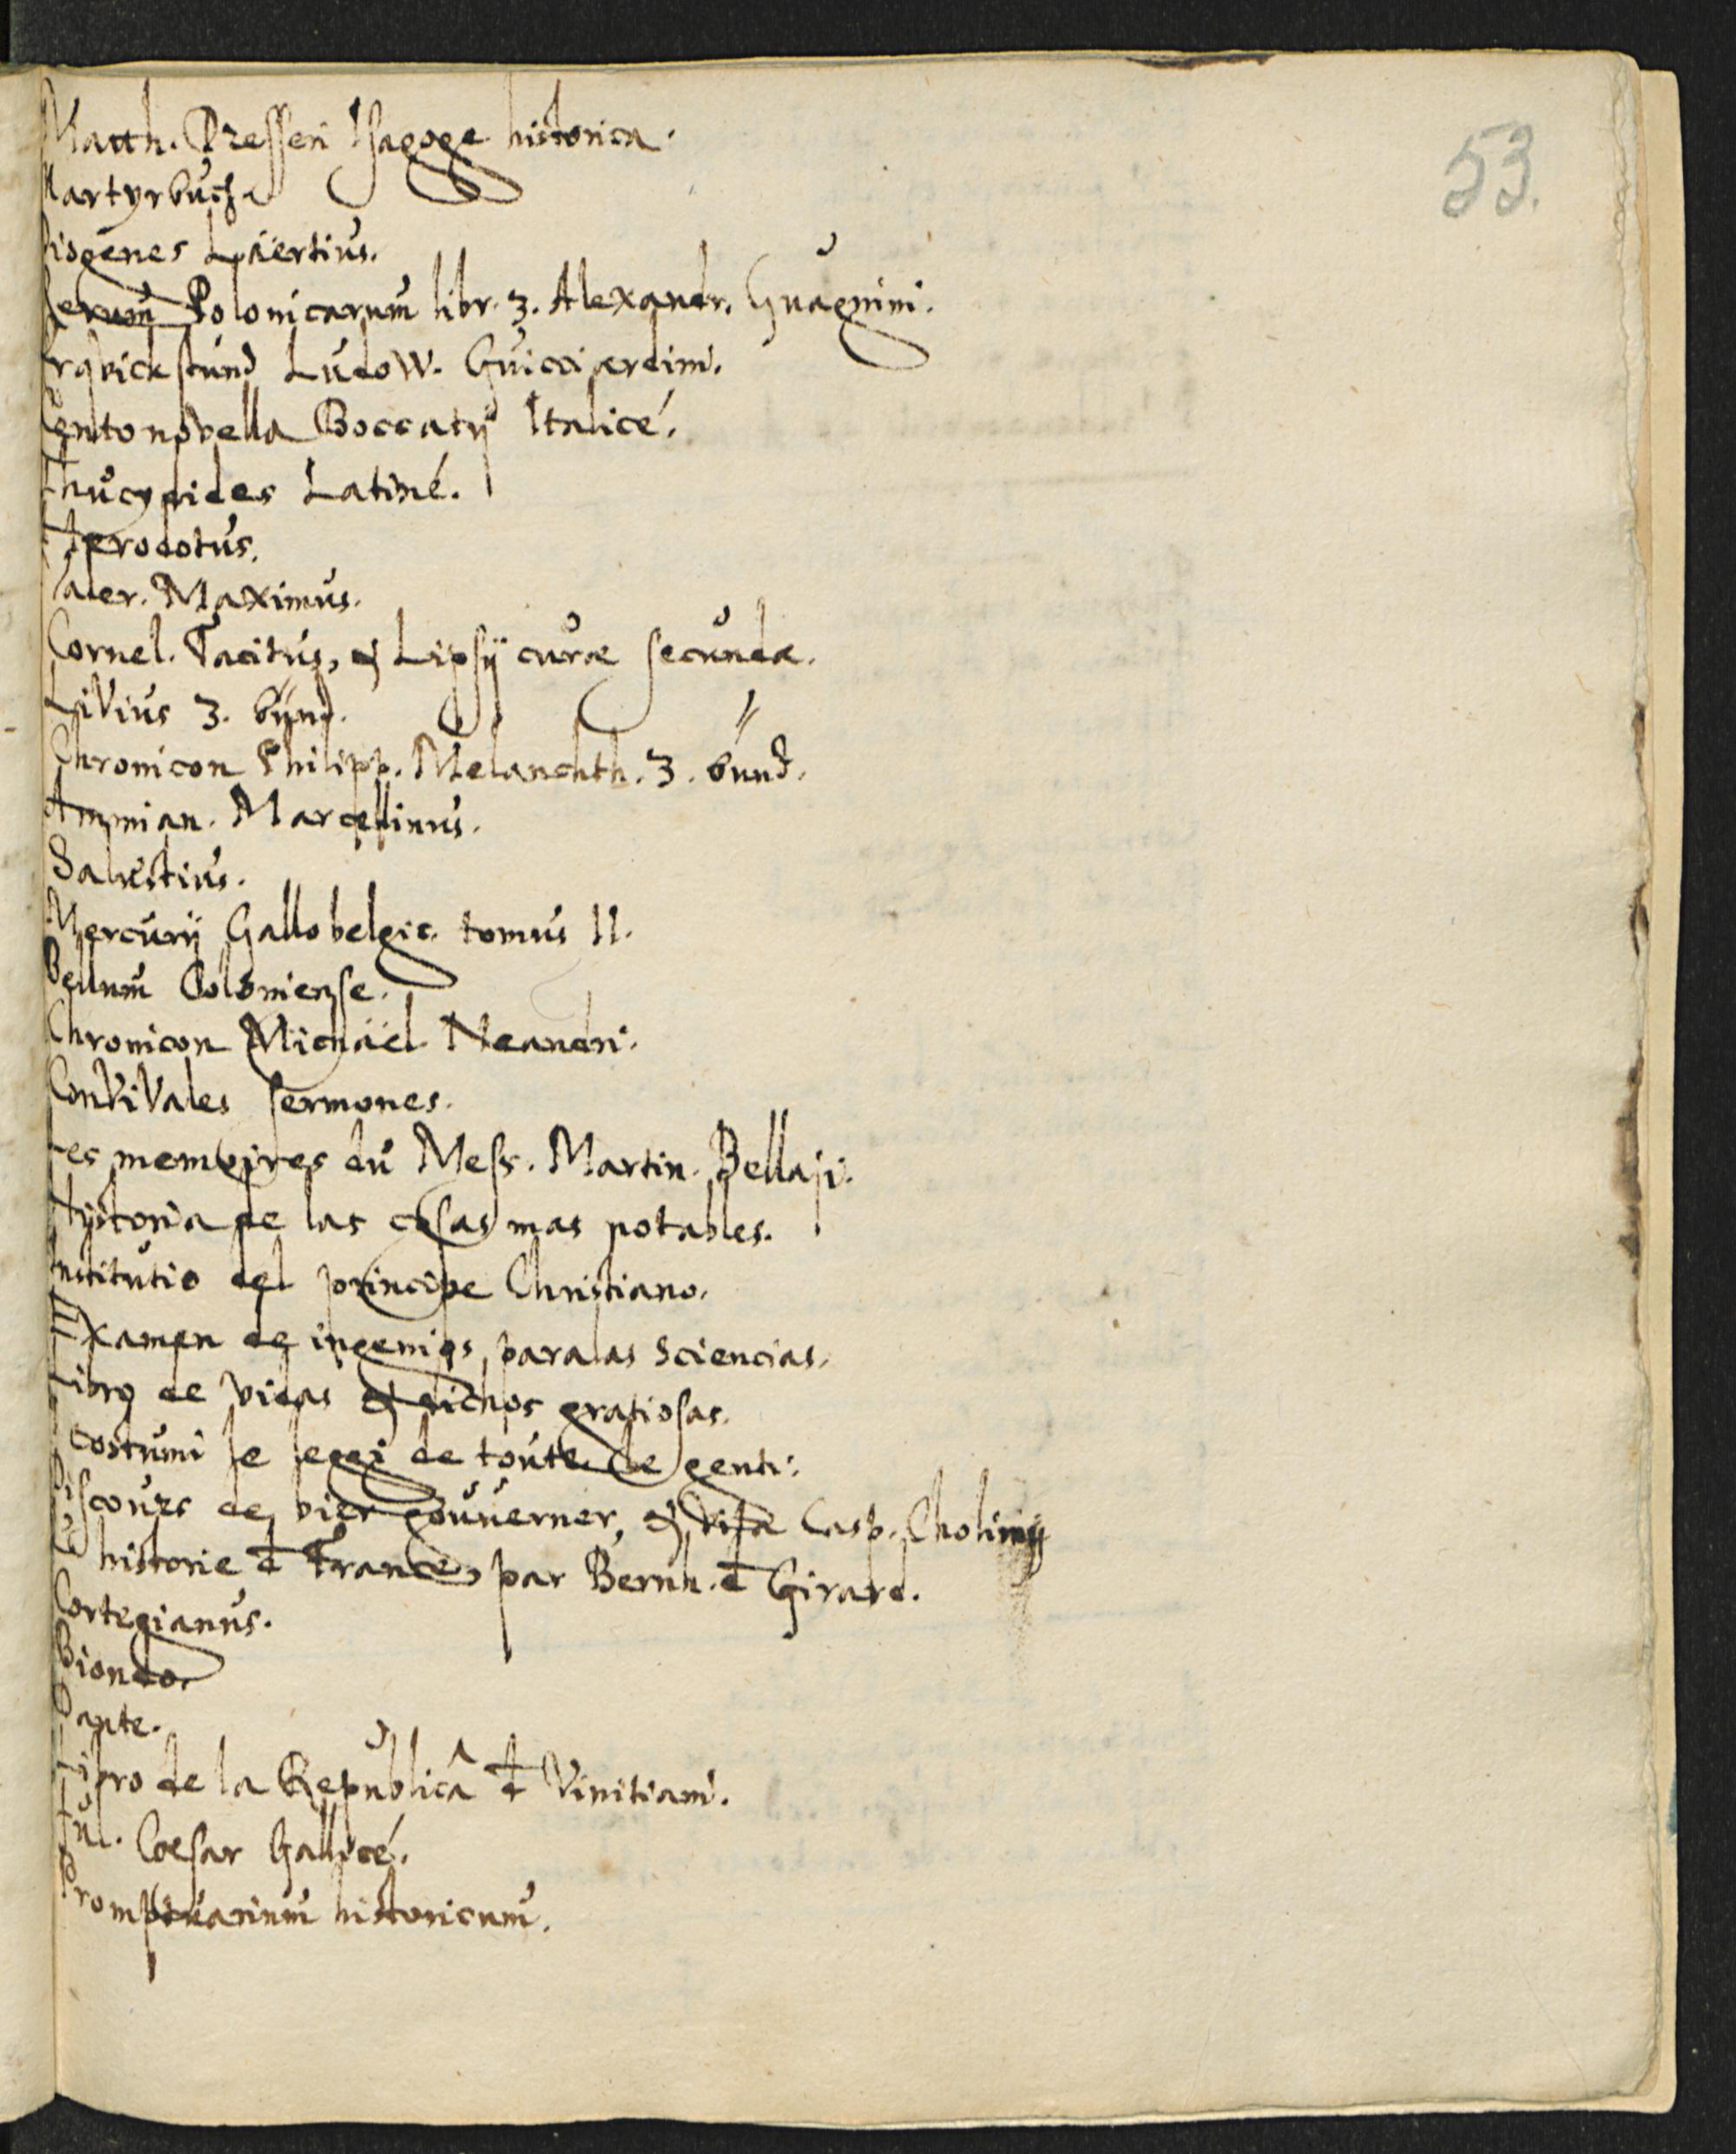 53.
Matth. Dresseri Isagoge historica.
Martyrbuch.
Diogenes Läertius.
Rerum Polonicarum libr. 3. Alexandr. Guagnini.
Erquickstund Ludow. Guicciardini.
Centonovella Boccatij Italicé.
Thucydides Latiné.
Herodotus.
Valer. Maximus.
Cornel. Tacitus, et Lipsij curæ secundæ.
Livius 3. bünd.
Chronicon Philipp. Melanchth. 3. bünd.
Ammian. Marcellinus.
Salustius.
Mercurij Gallobelgic. tomus II.
Bellum Coloniense.
Chronicon Michaël Neandri.
Convivales sermones.
Les memoires du Mess. Martin. Bellaji.
Historia de las cosas mas notables.
Institutio del principe Christiano.
Examen de ingenios para las Sciencias.
Libro de vidas et dichos gratiosas.
Costumi le leggi de toute le genti.
Discours de bien gouverner, et vita Casp. Cholinij
historie d France, par Bernh. d Girard.
Cortegianus.
Biondo.
Dante.
Libro de la Republicâ d Vinitiani.
Jul. Cæsar Gallicé.
Promptuarium historicum.